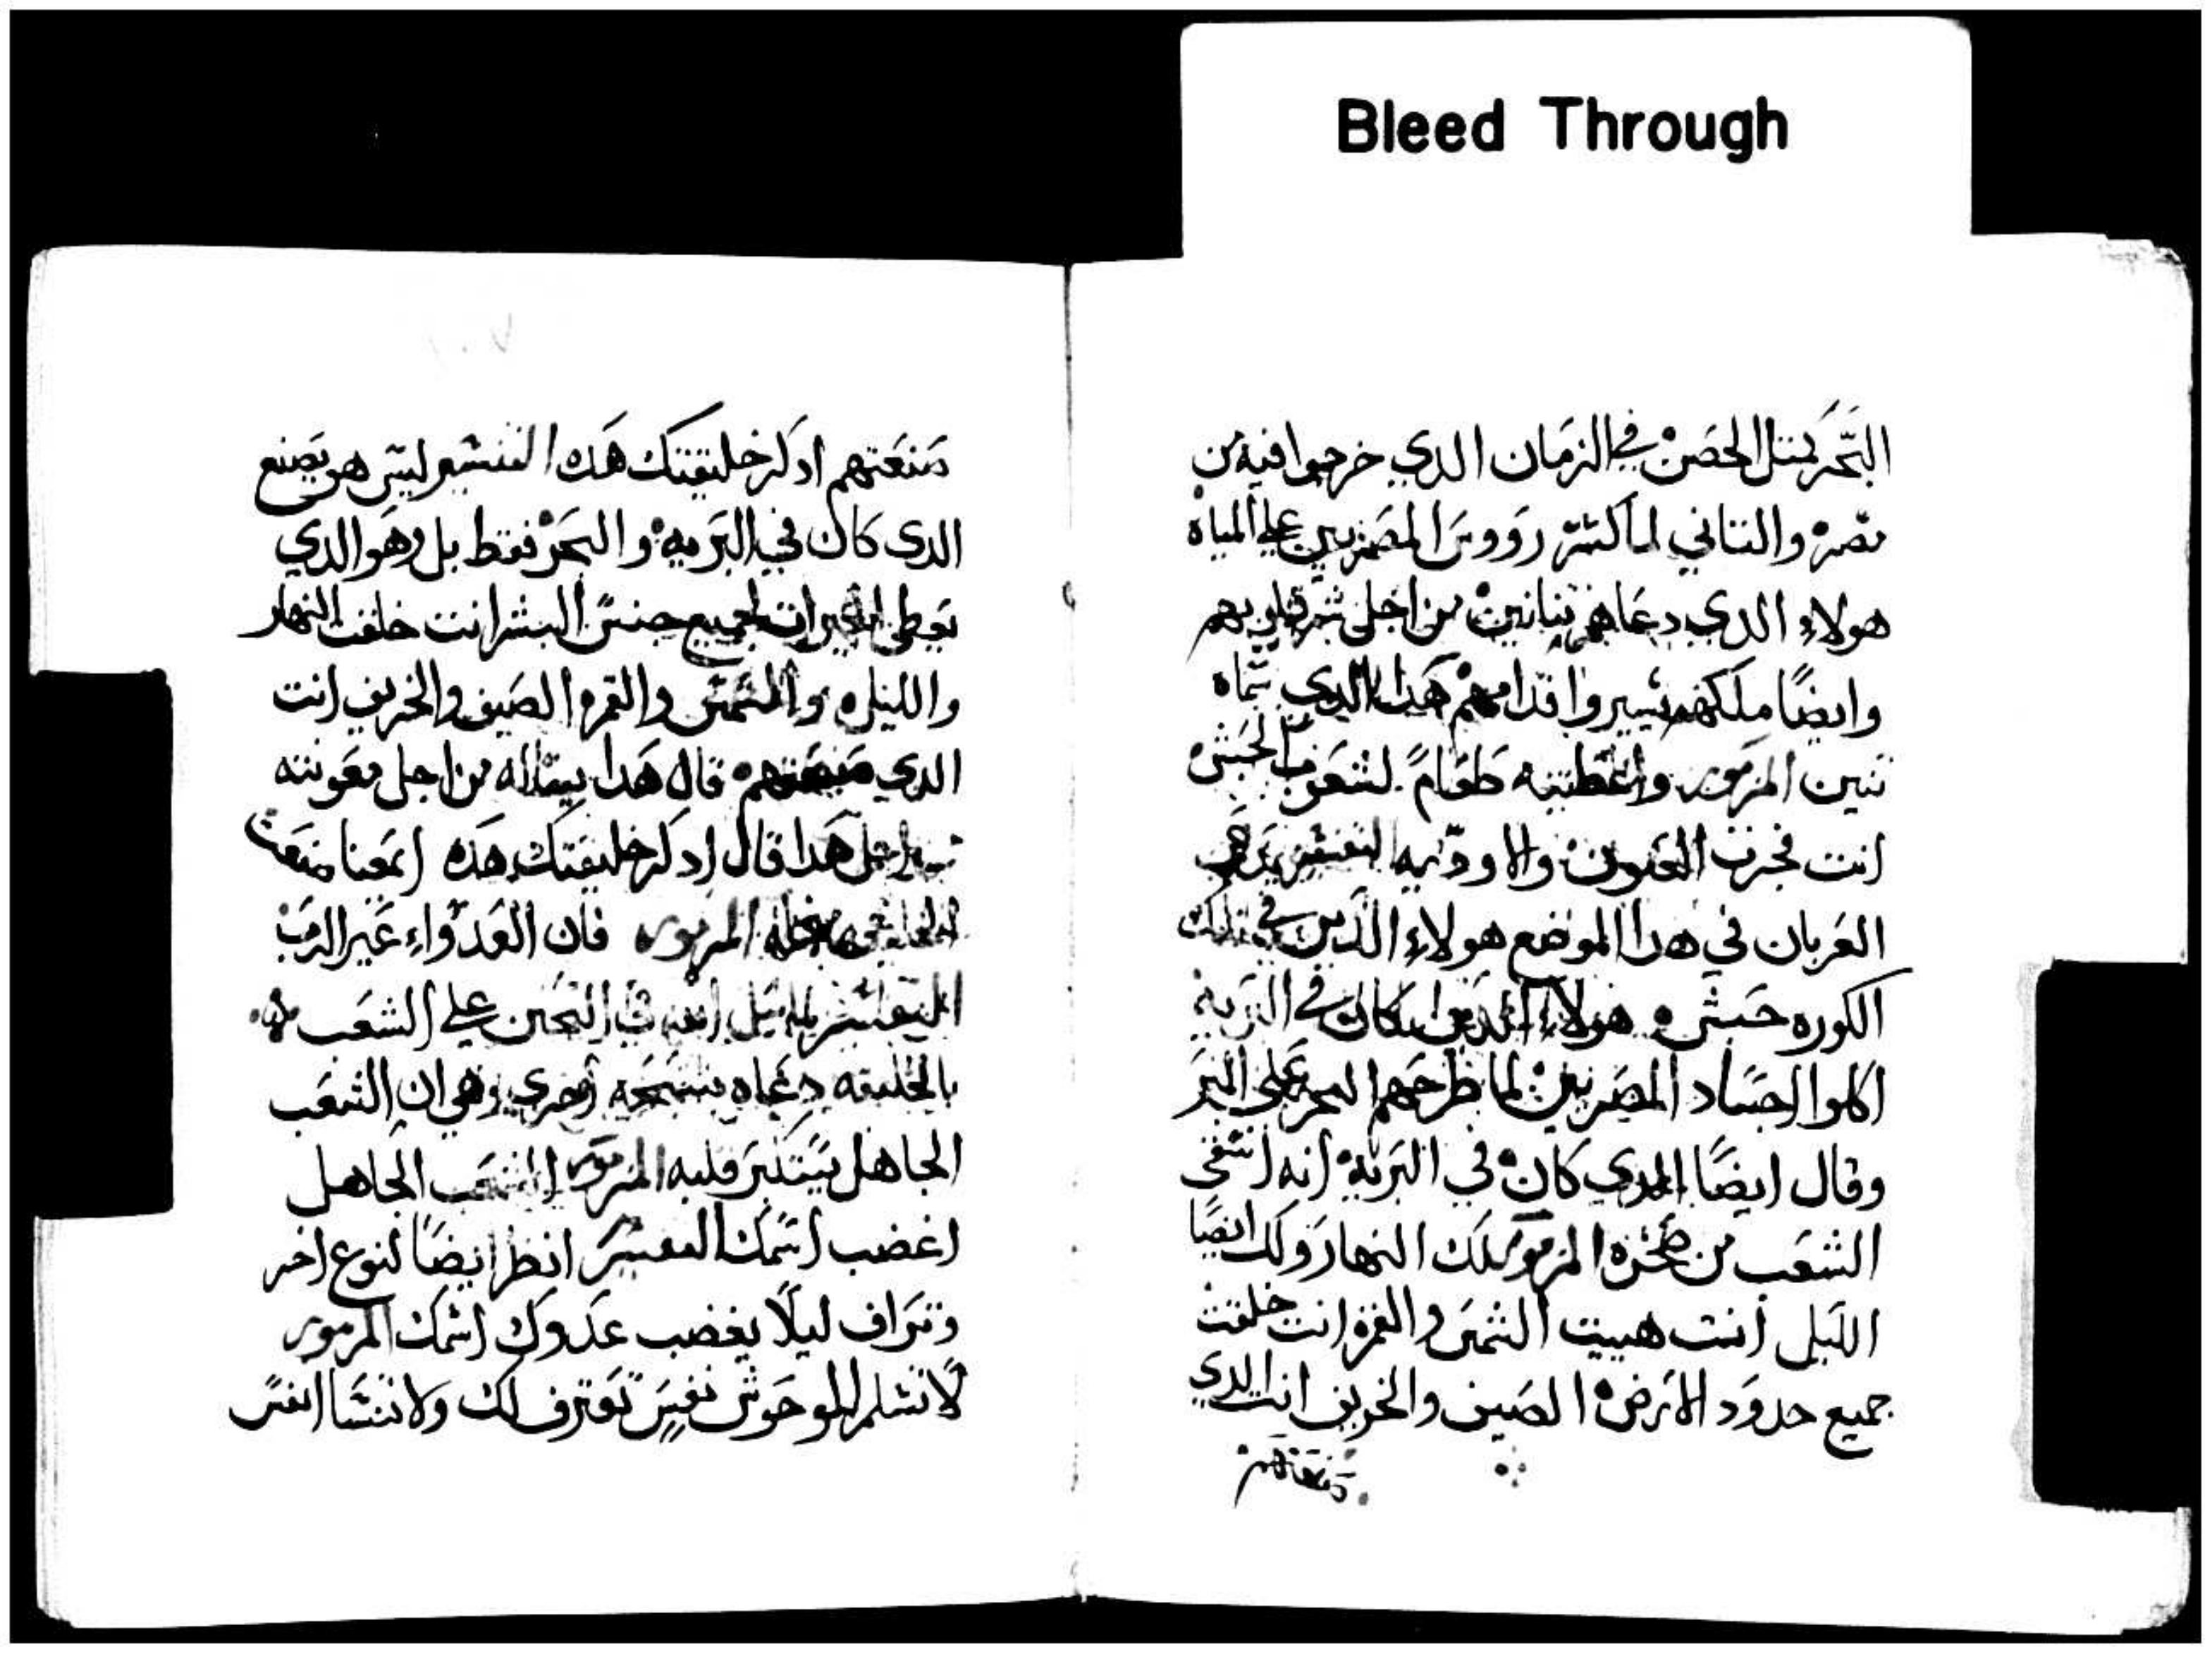 Bleed Through
البحر كمتل الحصن في الزمان الدي خرجوا فيه من
مصر والتاني لما كسر رووس المصريين علي المياه
هولاء الدي دعاهم تنانين من اجل شر قلوبهم
وايضًا ملكهم يسير واقدامهم هدا الدي سماه
تنين المزمور واعطيته طعامً لشعوب الحبشه
انت فجرت العيون والاوديه التفسير
العربان في هدا الموضع هولاء الدين في تلك
الكوره حبش هولاء الدين كان في البريه
اكلوا اجساد المصريين لما طرحهم البحر علي البر
وقال ايضًا الدي كان في البريه انه اسقي
الشعب من صخره المزمور لك النهار ولك ايضًا
الليل انت هييت الشمس والقمر انت خلقت
جميع حدود الارض الصيف والخريف انت الدي
صنعتهم
صنعتهم ادكر خليقتك هده التفسير ليس هو يصنع
الدى كان في البريه والبحر فقط بل وهو الدي
يعطي الخيرات لجميع جنس البشر انت خلقت النهار
والليل والشمس والقمر الصيف والخريف انت
الدي صنعتهم قال هدا يساله من اجل معونته
هدا قال ادكر خليقتك هده
المزمور فان العدواء عير الرب
التفسير علي الشعب
بالخليقه دعاه اخري وهي ان الشعب
الجاهل يستكبر قلبه المزمور الشعب الجاهل
اغضب اسمك التفسير انظر ايضًا لنوع اخر
وتراف ليلًا يغضب عدوك اسمك المزمور
لا تسلم للوحوش نفس تعترف لك ولا تنسا انفس